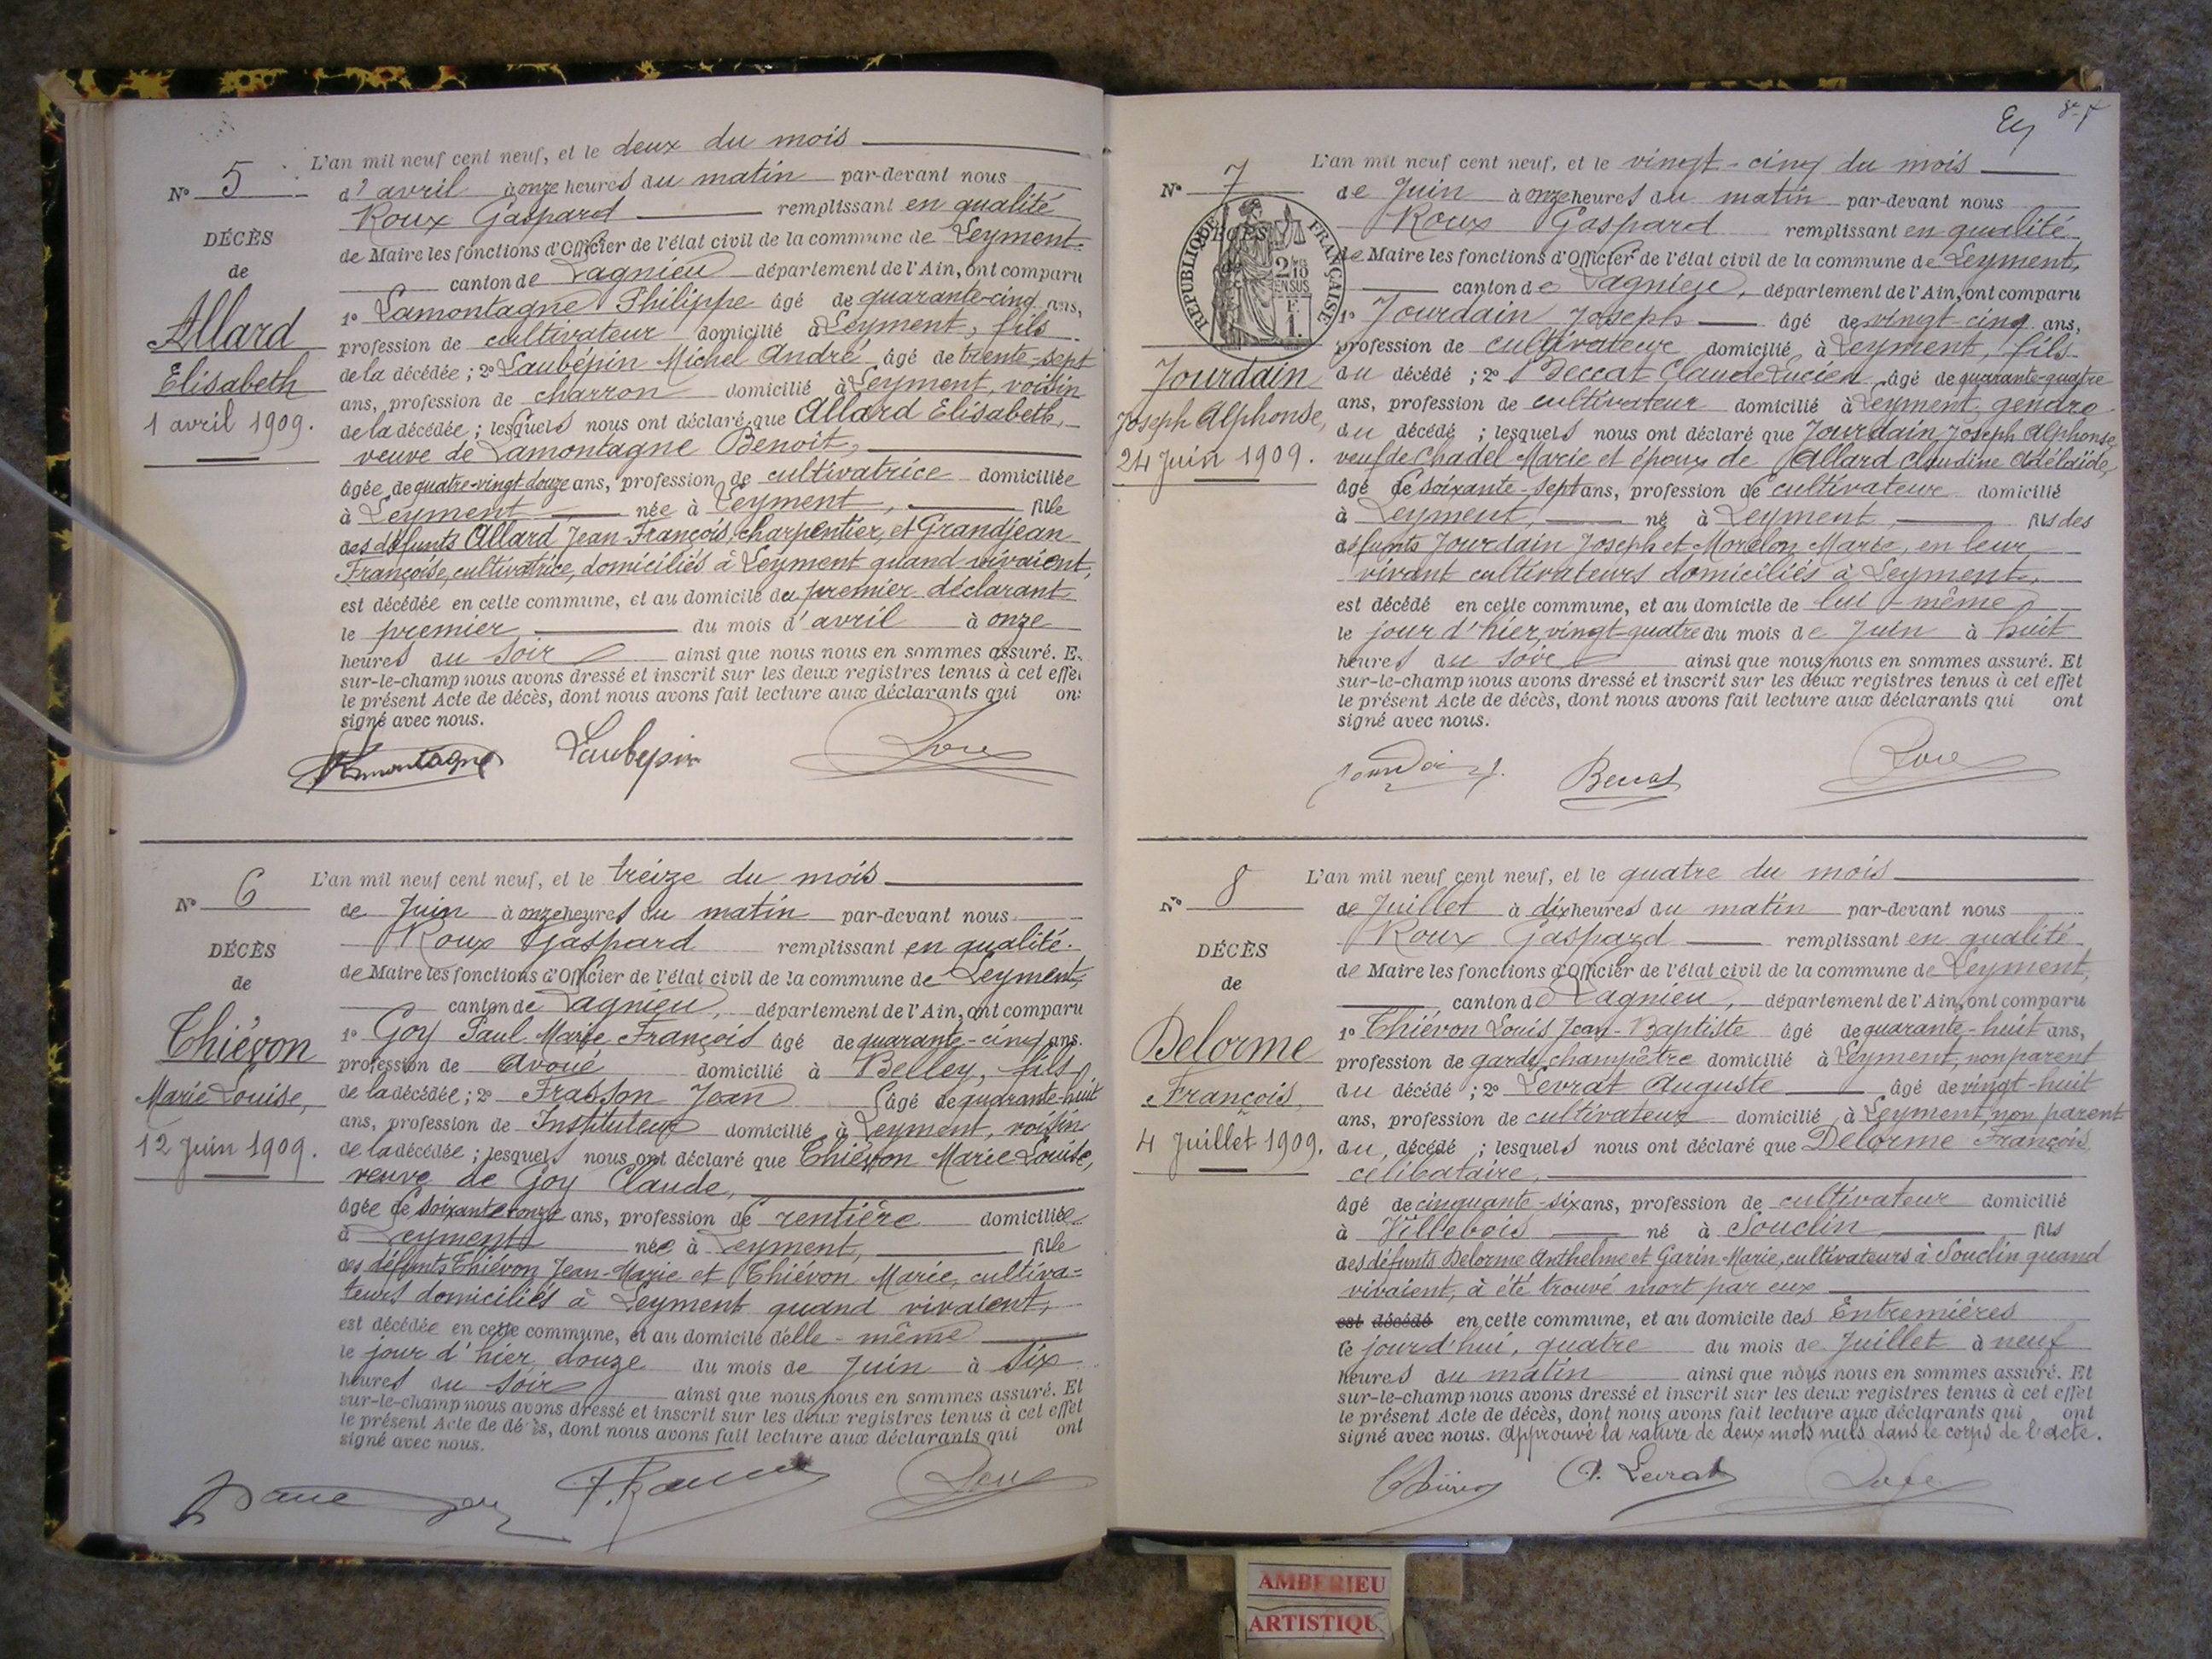 N° 5
DÉCÈS
de
Allard
Elisabeth
1 avril 1909.
L'an mil neuf cent neuf, et le deux du mois
d'avril à onze heures du matin par-devant nous
Roux Gaspard remplissant en qualité
de Maire les fonctions d'Officier de l'état civil de la commune de Leyment
canton de Lagnieu département de l'Ain, ont comparu
1° Lamontagne Philippe âgé de quarante-cinq ans,
profession de cultivateur domicilié à Leyment, fils
de la décédée ; 2° Laubépin Michel André, âgé de trente-sept
ans, profession de charron domicilié à Leyment, voisin
de la décédée ; lesquels nous ont déclaré que Allard Elisabeth,
veuve de Lamontagne Benoit,
âgée de quatre-vingt-douze ans, profession de cultivatrice domiciliée
à Leyment née à Leyment, fille
des défunts Allard Jean-François, charpentier, et Grandjean
Françoise, cultivatrice, domiciliés à Leyment quand vivaient,
est décédée en cette commune, et au domicile du premier déclarant
le premier du mois d'avril à onze
heures du soir ainsi que nous nous en sommes assuré. E
sur-le-champ nous avons dressé et inscrit sur les deux registres tenus à cet effet
le présent Acte de décès, dont nous avons fait lecture aux déclarants qui ont
signé avec nous.
Lamontagne Laubépin Roux
N° 6
DÉCÈS
de
Thiévon
Marie Louise,
12 Juin 1909.
L'an mil neuf cent neuf, et le treize du mois
de Juin à onze heures du matin par-devant nous
Roux Gaspard remplissant en qualité
de Maire les fonctions d'Officier de l'état civil de la commune de Leyment,
canton de Lagnieu, département de l'Ain, ont comparu
1° Goy Paul Marie François âgé de quarante-cinq ans.
profession de avoué domicilié à Belley, fils
de la décédée ; 2° Frasson Jean âgé de quarante-huit
ans, profession de Instituteur domicilié à Leyment, voisin
de la décédée ; lesquels nous ont déclaré que Thiévon Marie Louise,
veuve de Goy Claude,
âgée de soixante-onze ans, profession de rentière domiciliée
à Leyment née à Leyment, fille
des défunts Thiévon Jean-Marie et Thiévon Marie, cultiva-
teurs domiciliés à Leyment quand vivaient,
est décédée en cette commune, et au domicile d'elle-même
le jour d'hier, douze du mois de Juin à six
heures du soir ainsi que nous nous en sommes assuré. Et
sur-le-champ nous avons dressé et inscrit sur les deux registres tenus à cet effet
le présent Acte de décès, dont nous avons fait lecture aux déclarants qui ont
signé avec nous.
Roux
N° 7
RÉPUBLIQUE FRANÇAISE
2/10 EN SUS
1F
Jourdain
Joseph Alphonse,
24 Juin 1909.
L'an mil neuf cent neuf, et le vingt-cinq du mois
de Juin à onze heures du matin par-devant nous
Roux Gaspard remplissant en qualité
de Maire les fonctions d'Officier de l'état civil de la commune de Leyment,
canton de Lagnieu, département de l'Ain, ont comparu
1° Jourdain Joseph âgé de vingt-cinq ans,
profession de cultivateur domicilié à Leyment, fils
du décédé ; 2° Beccat Claude Lucien âgé de quarante-quatre
ans, profession de cultivateur domicilié à Leyment, gendre
du décédé ; lesquels nous ont déclaré que Jourdain Joseph Alphonse
veuf de Chadel Marie et époux de Allard Claudine Adélaïde,
âgé de soixante-sept ans, profession de cultivateur domicilié
à Leyment, né à Leyment fils des
défunts Jourdain Joseph et Morelon Marie, en leur
vivant cultivateurs domiciliés à Leyment,
est décédé en cette commune, et au domicile de lui-même
le jour d'hier, vingt-quatre du mois de Juin à huit
heures du soir ainsi que nous nous en sommes assuré. Et
sur-le-champ nous avons dressé et inscrit sur les deux registres tenus à cet effet
le présent Acte de décès, dont nous avons fait lecture aux déclarants qui ont
signé avec nous.
Beccat Roux
N° 8
DÉCÈS
de
Delorme
François
4 Juillet 1909.
L'an mil neuf cent neuf, et le quatre du mois
de Juillet à dix heures du matin par-devant nous
Roux Gaspard remplissant en qualité
de Maire les fonctions d'Officier de l'état civil de la commune de Leyment,
canton de Lagnieu, département de l'Ain, ont comparu
1° Thiévon Louis Jean-Baptiste âgé de quarante-huit ans,
profession de garde champêtre domicilié à Leyment, non parent
du décédé ; 2° Levrat Auguste âgé de vingt-huit
ans, profession de cultivateur domicilié à Leyment, non parent
du décédé ; lesquels nous ont déclaré que Delorme François
célibataire,
âgé de cinquante-six ans, profession de cultivateur domicilié
à Villebois né à Souclin fils
des défunts Delorme Anthelme et Garin Marie, cultivateurs à Souclin quand
vivaient, à été trouvé mort par eux
est décédé en cette commune, et au domicile des Entremières
le jour d'hui, quatre du mois de Juillet à neuf
heures du matin ainsi que nous nous en sommes assuré. Et
sur-le-champ nous avons dressé et inscrit sur les deux registres tenus à cet effet
le présent Acte de décès, dont nous avons fait lecture aux déclarants qui ont
signé avec nous. Approuvé la rature de deux mots nuls dans le corps de l'acte.
Thiévon A. Levrat Roux
AMBERIEU
ARTISTIQU